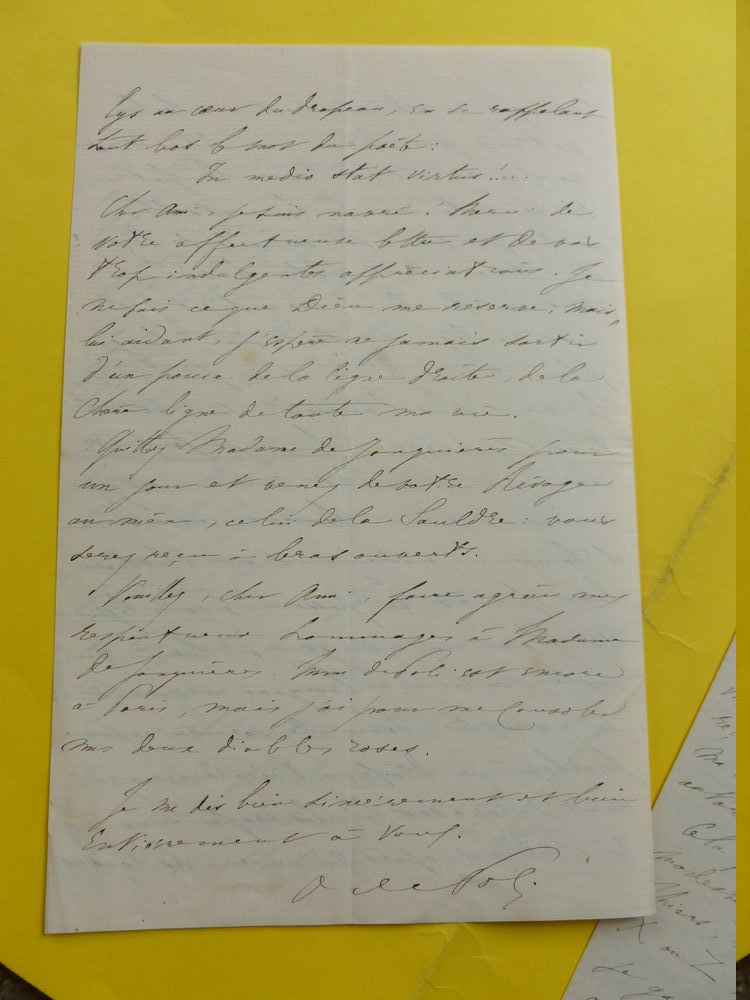 lys au cœur du drapeau, en se rappelant
tout bas le mot du poète :
In medio stat virtus !...
Cher Ami, je suis navré ! Merci de
votre affectueuse lettre et de vos
trop indulgentes appréciations. Je
ne sais ce que Dieu me réserve ; mais,
lui aidant, j'espère ne jamais sortir
d'un pouce de la ligne droite, de la
chère ligne de toute ma vie.
Quittez Madame de Jonquières pour
un jour et venez de votre Rivage
au mien, celui de la Sauldre : vous
serez reçu à bras ouverts.
Veuillez, cher Ami, faire agréer mes
respectueux hommages à Madame
de Jonquières. Mme de Poli est encore
à Paris, mais j'ai pour me consoler
mes deux diables roses.
Je me dis bien sincèrement et bien
Entièrement à Vous.
O de Poli
ma
Cela
modest
Thiers
X ou Z